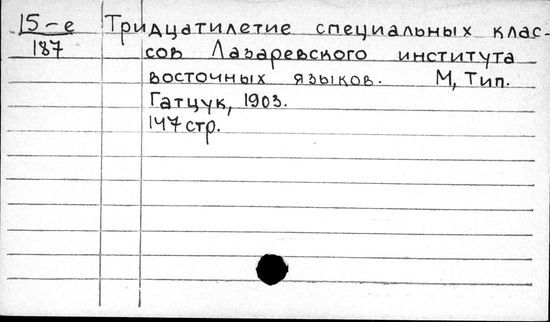 15-е Тридцатилетие специальных клас-
187 сов Лазаревского института
восточных языков. М, Тип.
Гатцук, 1903.
147 стр.